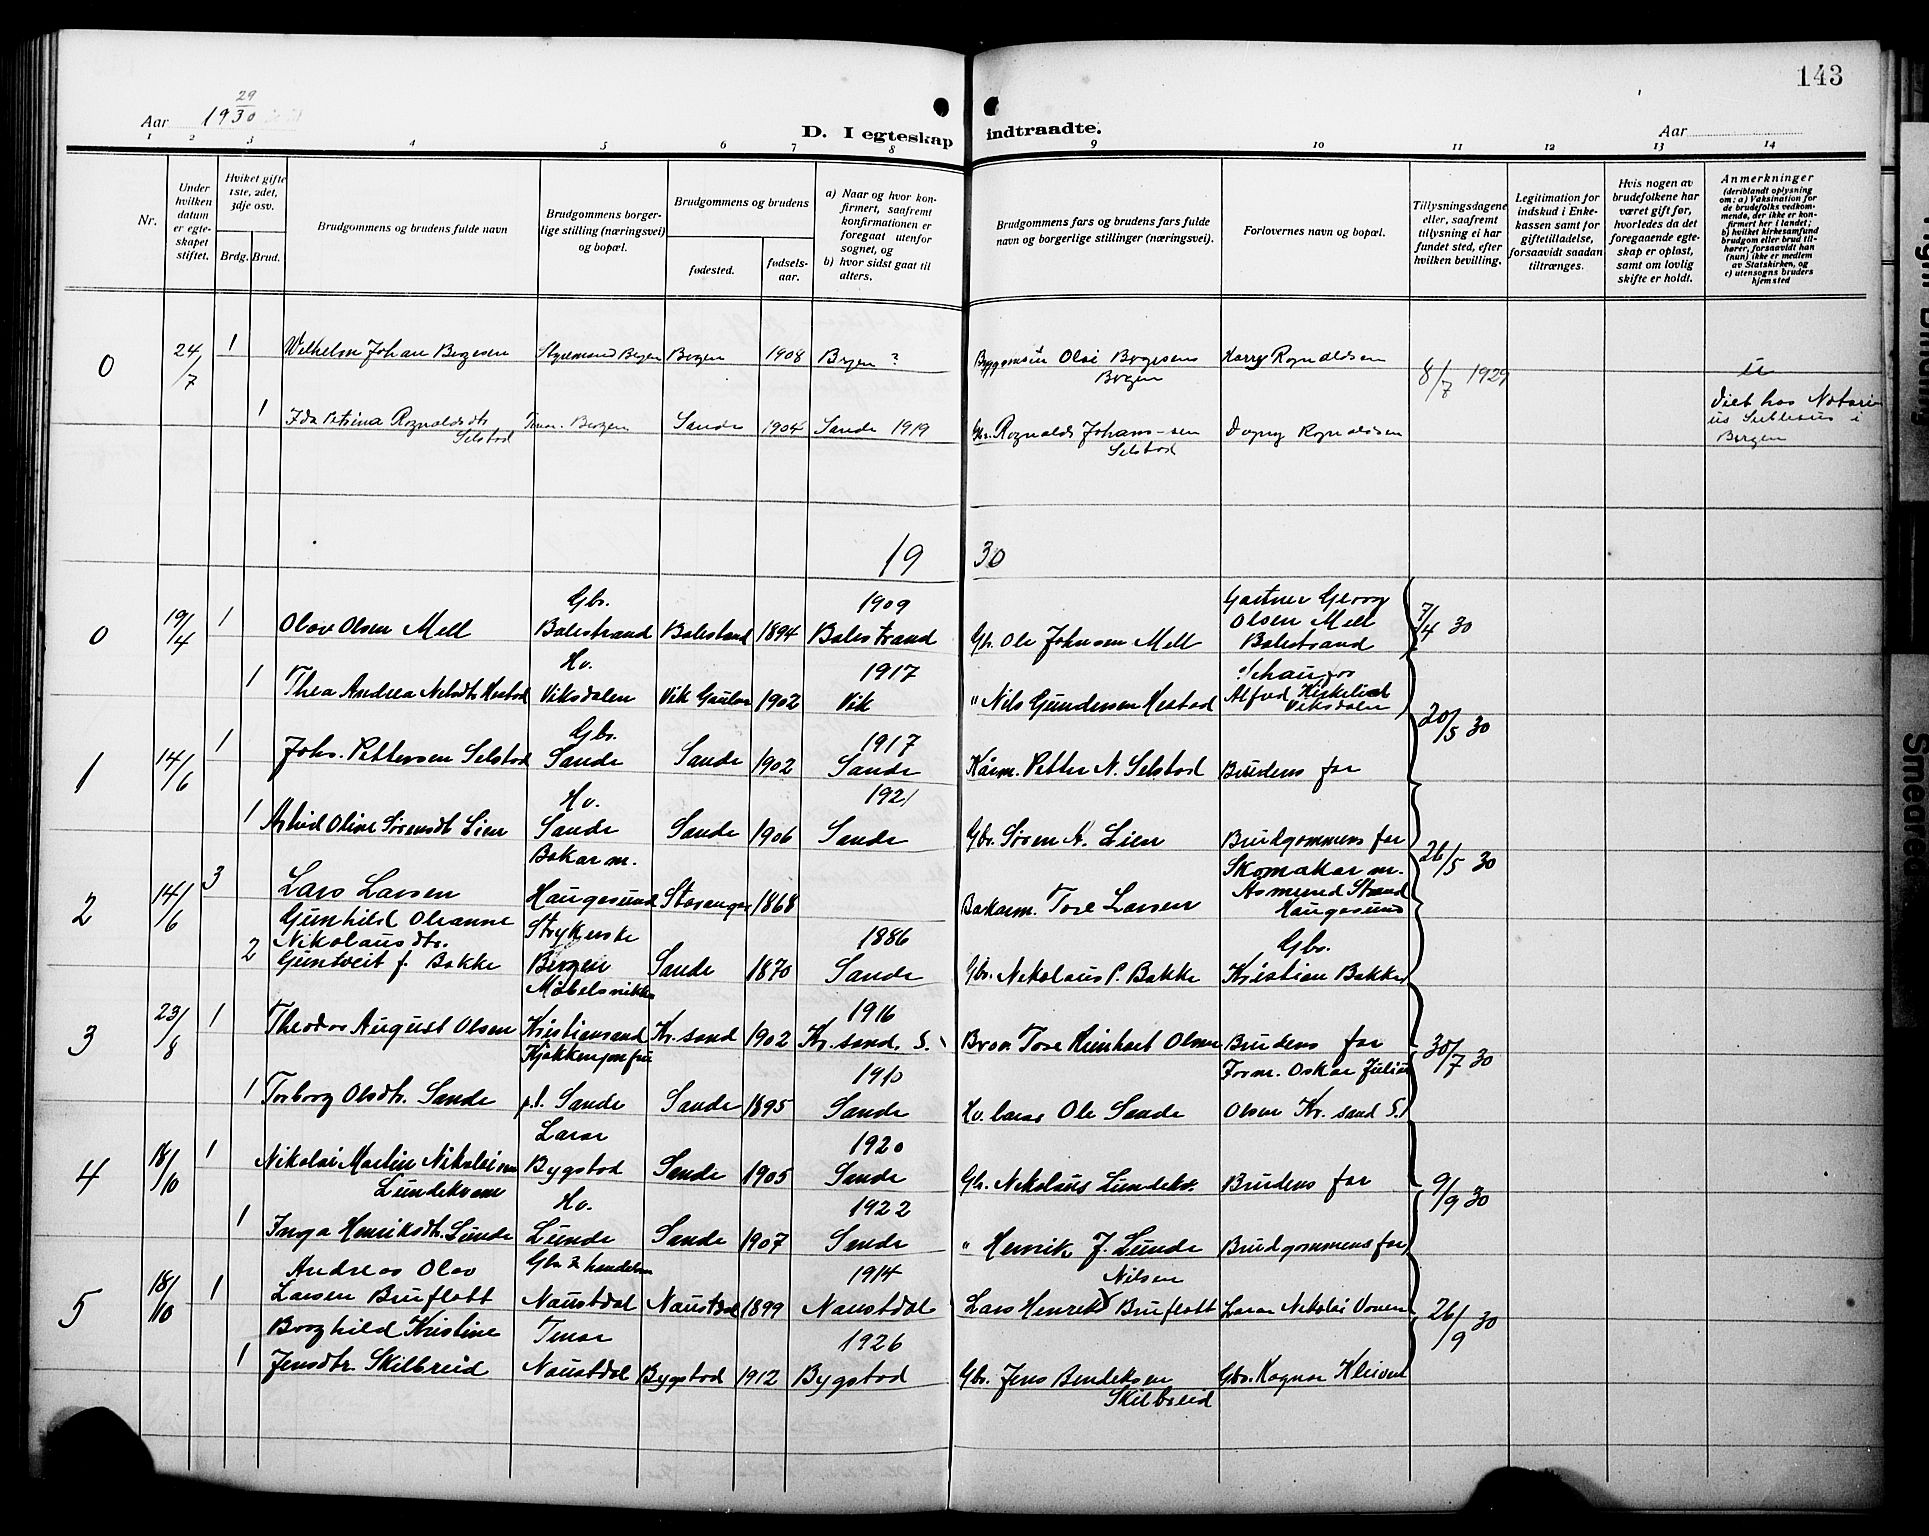 143
Aar 19 29/30
D. I egteskap indtraadte.
Aar
1 2 3 4 5 6 7 8 9 10 11 12 13 14
Nr.
Under hvilken datum er egteskapet stiftet.
Hviket gifte 1ste, 2det, 3dje osv.
Brdg. Brud.
Brudgommens og brudens fulde navn
Brudgommens borgerlige stilling (næringsvei) og bopæl.
Brudgommens og brudens
fødested.
fødselsaar.
a) Naar og hvor konfirmert, saafremt konfirmationen er foregaat utenfor sognet, og
b) hvor sidst gaat til alters.
Brudgommens fars og brudens fars fulde navn og borgerlige stillinger (næringsvei).
Forlovernes navn og bopæl.
Tillysningsdagene eller, saafremt tillysning ei har fundet sted, efter hvilken bevilling.
Legitimation for indskud i Enkekassen samt for giftetilladelse, forsaavidt saadan tiltrænges.
Hvis nogen av brudefolkene har været gift før, hvorledes da det foregaaende egteskap er opløst, samt om lovlig skifte er holdt.
Anmerkninger
(deriblandt oplysning om: a) Vaksination for de brudefolks vedkommende, der ikke er konfirmert her i landet; b) hvilket kirkesamfund brudgom eller brud tilhører, forsaavidt han (hun) ikke er medlem av Statskirken, og c) utensogns bruders hjemsted
0 24/7 1 Wilhelm Johan Bergesen Styrmand Bergen Bergen 1908 Bergen ? Olai Bergesen Bergen Harry Rognaldsen 8/7 1929
1 Ida Petrina Rognaldsdtr Selstad Bergen Sande 1904 Sande 1919 Gbr. Rognald Johans-sen Selstad Dagny Rognaldsen Viet hos Notarius i Bergen
19 30
0 19/4 1 Olav Olsen Mell Gbr. Balestrand Balestrand 1894 1909 Balestrand Gbr. Ole Johnsen Mell Gartner Georg Olsen Mell Balestrand 7/4 30
1 Thea Andrea Nilsdtr Hestad Hv. Viksdalen Vik Gaular 1902 1917 Vik " Nils Gundersen Hestad Alfred Viksdalen
1 14/6 1 Johs. Pettersen Selstad Gbr. Sande Sande 1902 1917 Sande Kårm. Petter N. Selstad Brudens far 20/5 30
1 Astrid Oline Sørensdt. Lien Hv. Sande Sande 1906 1921 Sande Gbr. Søren A. Lien Brudgommens far
2 14/6 3 Lars Larsen Bakarm. Haugesund Stavanger 1868 Bakarm. Tore Larsen Skomakarm. Asmund Strand Haugesund 26/5 30
2 Gunhild Oleanne Nikolausdtr. Guntveit f. Bakke Strykerske Bergen Sande 1870 1886 Sande Gbr. Nikolaus P. Bakke Gbr. Kristian Bakke
3 23/8 1 Theodor August Olsen Møbelsnikker Kristiansand Kr. sand 1902 1916 Kr. sand. S. Tore Reinhart Olsen Brudens far 30/7 30
1 Torborg Olsdtr. Sande Kjøkkenjomfru p.t. Sande Sande 1895 1910 Sande Hv. lærar Ole Sande Form. Oskar Julius Olsen Kr. sand S.
4 18/10 1 Nikolai Martin Nikolaisen Lundekvam Lærar Bygstad Sande 1905 1920 Sande Gbr. Nikolaus Lundekv. Brudens far 9/9 30
1 Inga Henriksdtr. Lunde Hv. Lunde Sande 1907 1922 Sande " Henrik J. Lunde Brudgommens far
5 18/10 1 Andreas Olav Larsen Bruflott Gbr. & handelsm Naustdal Naustdal 1899 1914 Naustdal Lars Henrik Nilsen Bruflott Lærar Nikolai Vonen 26/9 30
1 Borghild Kristine Jensdtr. Skilbreid Tenar Naustdal Bygstad 1912 1926 Bygstad Gbr. Jens Bendiksen Skilbreid Gbr. Ragnar Kleiven